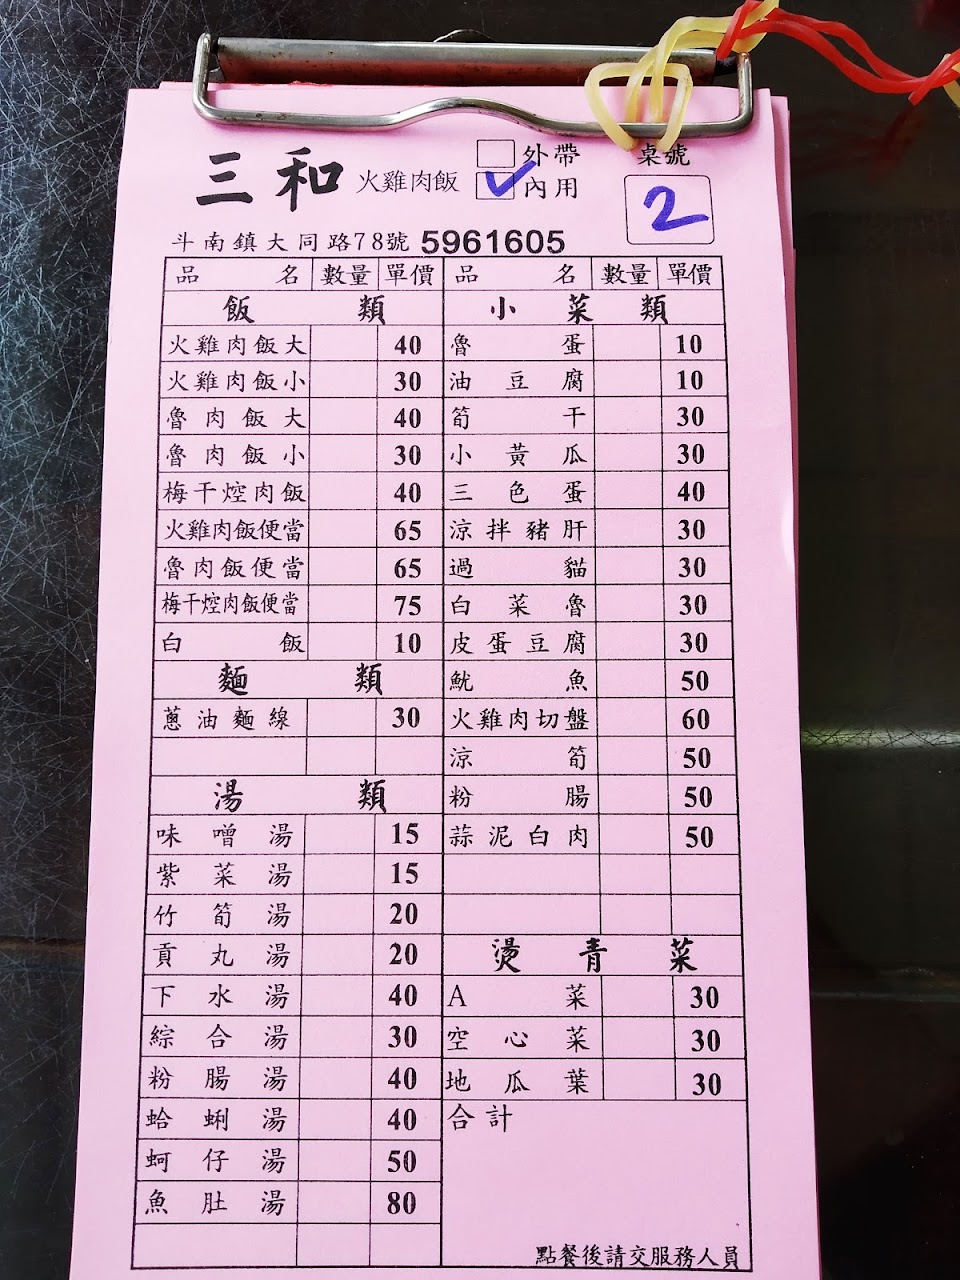 三和 火雞肉飯
外帶
內用
桌號
2
斗南鎮大同路78號 5961605
品名 數量 單價
飯類
火雞肉飯大 40
火雞肉飯小 30
魯肉飯大 40
魯肉飯小 30
梅干焢肉飯 40
火雞肉飯便當 65
魯肉飯便當 65
梅干焢肉飯便當 75
白飯 10
麵類
蔥油麵線 30
湯類
味噌湯 15
紫菜湯 15
竹筍湯 20
貢丸湯 20
下水湯 40
綜合湯 30
粉腸湯 40
蛤蜊湯 40
蚵仔湯 50
魚肚湯 80
品名 數量 單價
小菜類
魯蛋 10
油豆腐 10
筍干 30
小黃瓜 30
三色蛋 40
涼拌豬肝 30
過貓 30
白菜魯 30
皮蛋豆腐 30
魷魚 50
火雞肉切盤 60
涼筍 50
粉腸 50
蒜泥白肉 50
燙青菜
A菜 30
空心菜 30
地瓜葉 30
合計
點餐後請交服務人員